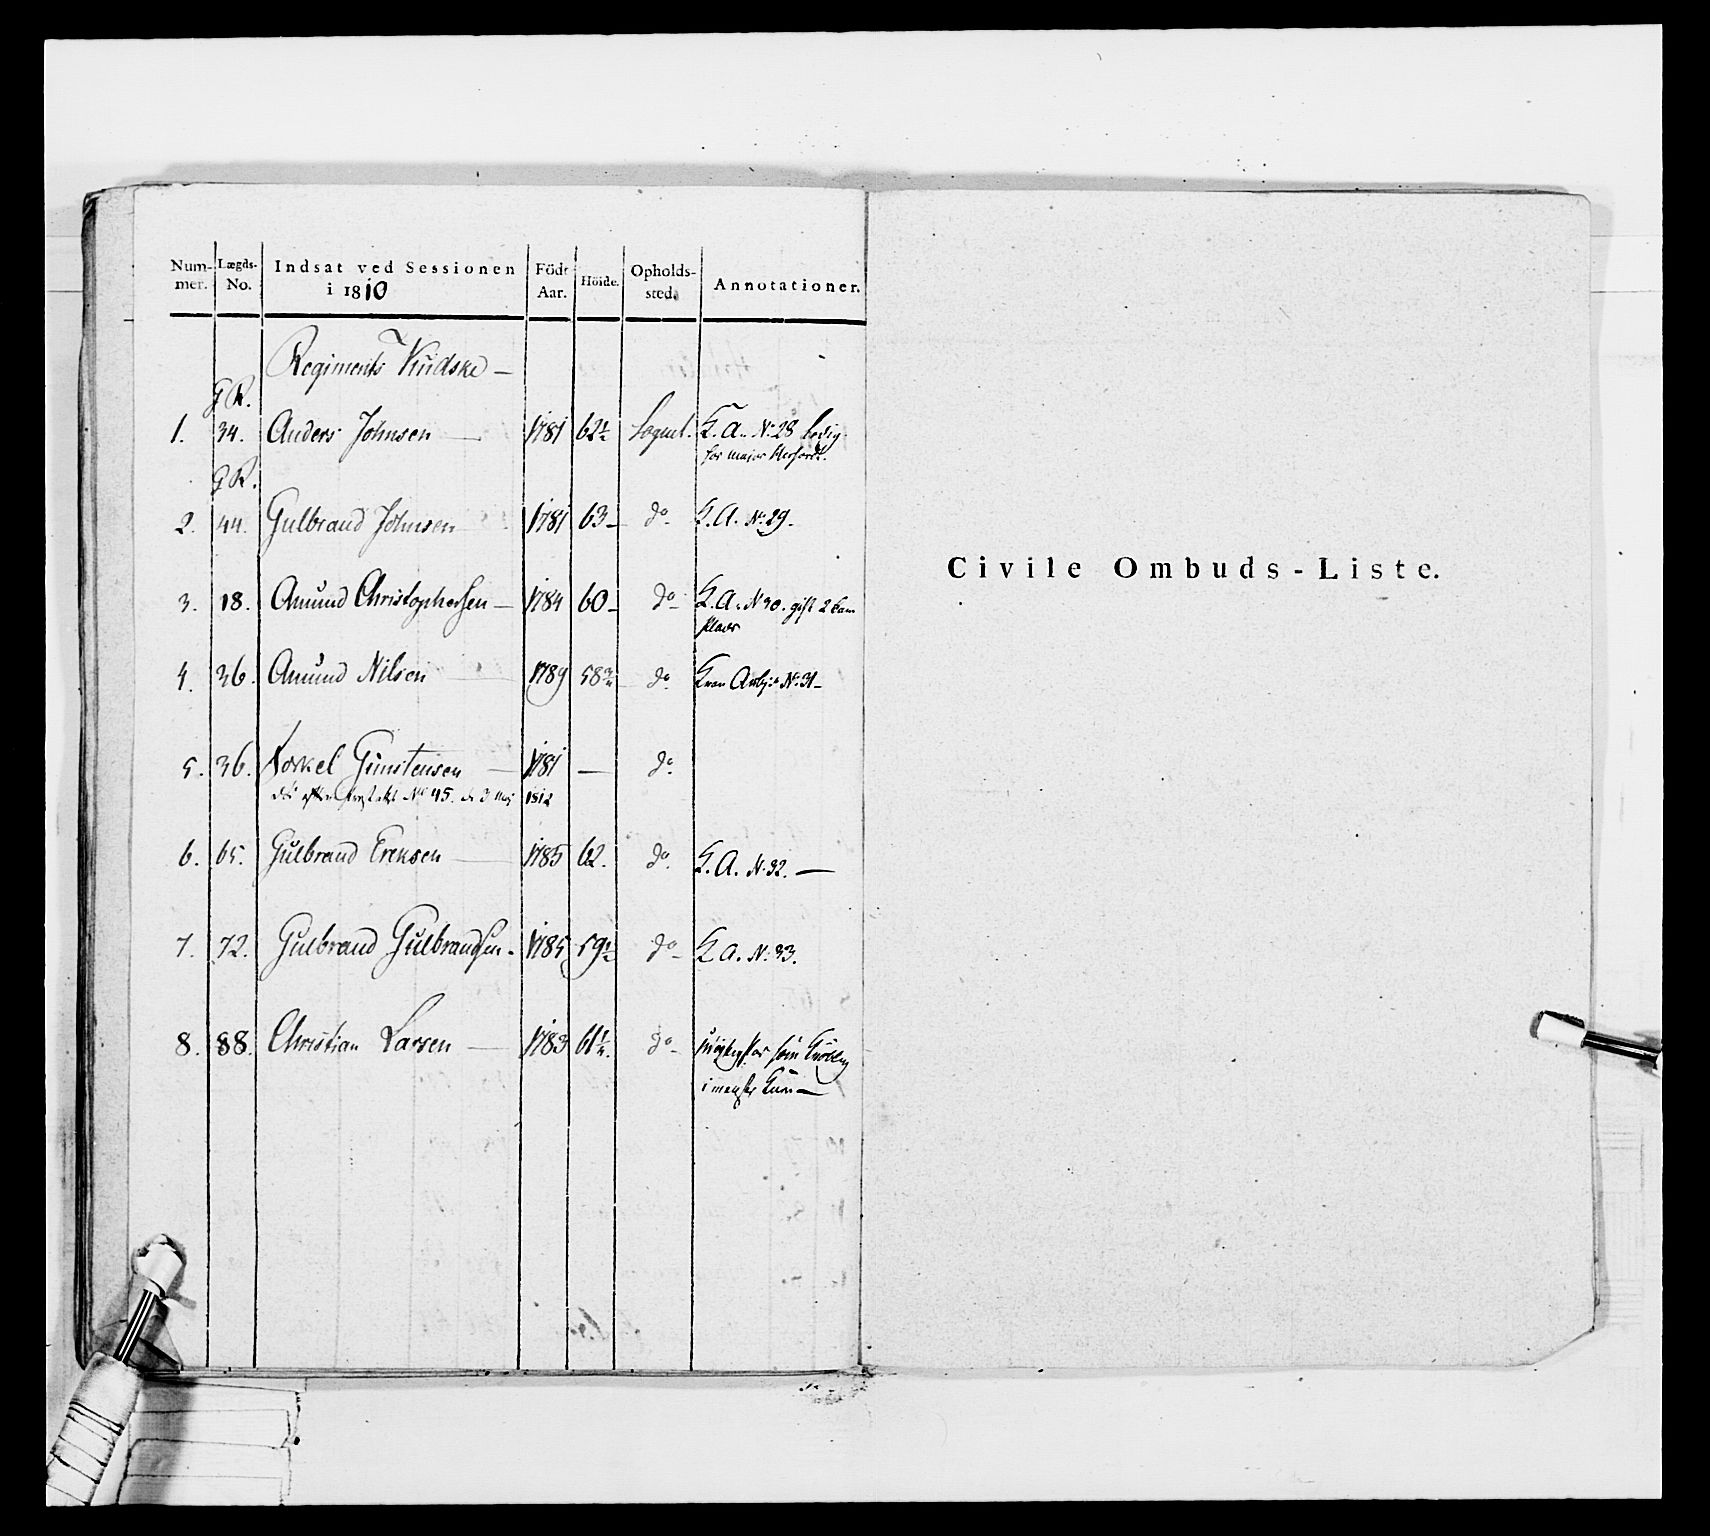 Num- Lægds- Indsat ved Sessionen Födt Höide. Opholds- Annotationer.
mer. No. i 1810 Aar. sted.
Regiments Kudske —
G R.
1. 34. Anders Johnsen — 1781 62½ Sognet. K. A. No. 28
for major
G R.
2. 44. Gulbrand Johnsen 1781 63 — do. K. A. No. 29.
3. 18. Amund Christophersen — 1784 60 — do — K. A. No 30. gift 2 barn
4. 36. Amund Nilsen — 1789 58¾ do. No. 31 —
5. 36. Torkel Gunstensen — 1781 — do.
No 45. 1812
6. 65. Gulbrand Ereksen — 1785 62. do. K. A. No. 32. —
7. 72. Gulbrand Gulbrandsen. 1785 59½ do — K A. No. 33.
8. 88. Christian Larsen — 1783 61½. do — som
i
Civile Ombuds-Liste.